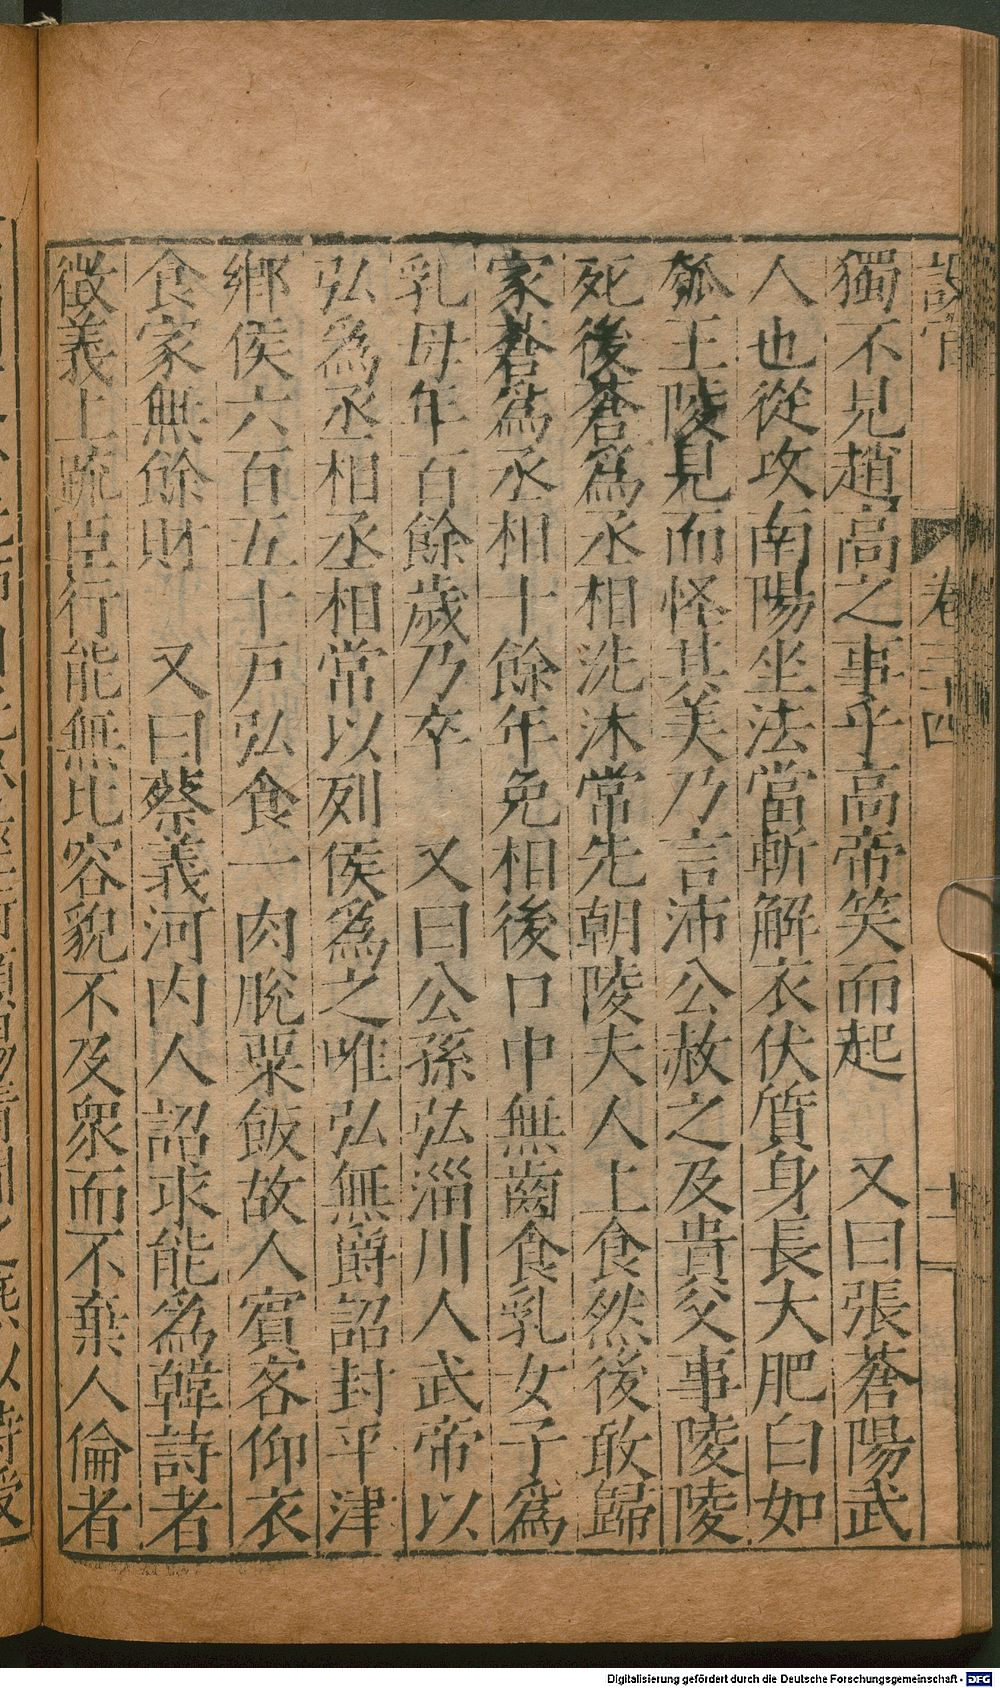 卷三十四
十二
獨不見趙高之事乎高帝笑而起　又曰張蒼陽武
人也從攻南陽坐法當斬解衣伏質身長大肥白如
瓠王陵見而怪其美乃言沛公赦之及貴父事陵陵
死後蒼爲丞相洗沐常先朝陵夫人上食然後敢歸
家蒼爲丞相十餘年免相後口中無齒食乳女子爲
乳母年百餘歲乃卒　又曰公孫弘淄川人武帝以
弘爲丞相丞相常以列侯爲之唯弘無爵詔封平津
鄉侯六百五十戸弘食一肉脫粟飯故人賓客仰衣
食家無餘財　又曰蔡義河内人詔求能爲韓詩者
徵義上疏臣行能無比容貌不及衆而不棄人倫者
Digitalisierung gefördert durch die Deutsche Forschungsgemeinschaft - DFG